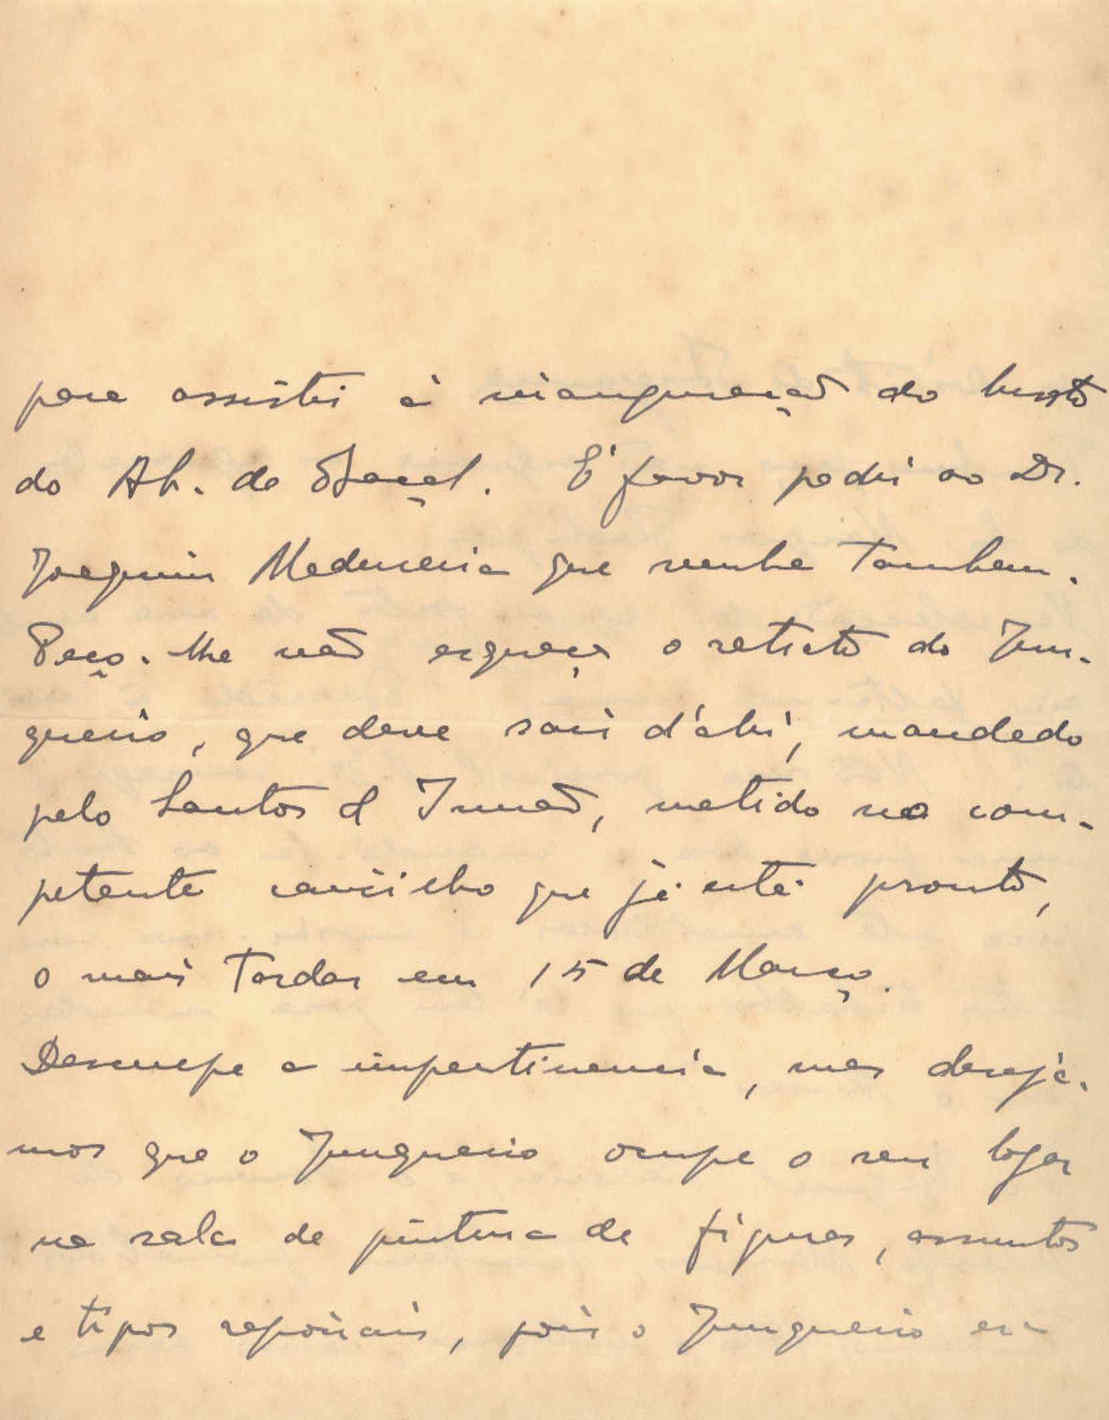 para assistir á inauguração do busto
do Ab. de Baçal. É favor pedir ao Dr.
Joaquim Madureira que venha tambem.
Peço-lhe não esqueça o retrato do Jun-
queiro, que deve sair d'ahi, mandado
pelo Santos & Irmão, metido no com-
petente caixilho que já está pronto,
o mais tardar em 15 de Março.
Desculpe a impertinencia, mas desejá-
mos que o Junqueiro ocupe o seu logar
na sala de pintura de figuras, assuntos
e tipos regionais, pois o Junqueiro era